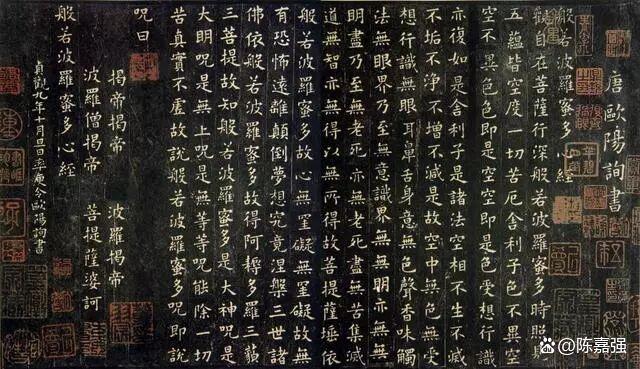 唐歐陽詢書
般若波羅蜜多心經
觀自在菩薩行深般若波羅蜜多時照見
五蘊皆空度一切苦厄舍利子色不異空
空不異色色即是空空即是色受想行識
亦復如是舍利子是諸法空相不生不滅
不垢不淨不增不減是故空中無色無受
想行識無眼耳鼻舌身意無色聲香味觸
法無眼界乃至無意識界無無明亦無無
明盡乃至無老死亦無老死盡無苦集滅
道無智亦無得以無所得故菩提薩埵依
般若波羅蜜多故心無罣礙無罣礙故無
有恐怖遠離顛倒夢想究竟涅槃三世諸
佛依般若波羅蜜多故得阿耨多羅三藐
三菩提故知般若波羅蜜多是大神呪是
大明呪是無上呪是無等等呪能除一切
苦真實不虛故說般若波羅蜜多呪即說
呪曰
揭帝揭帝 波羅揭帝
波羅僧揭帝 菩提薩婆訶
般若波羅蜜多心經
貞觀九年十月 令歐陽詢書
@陈嘉强